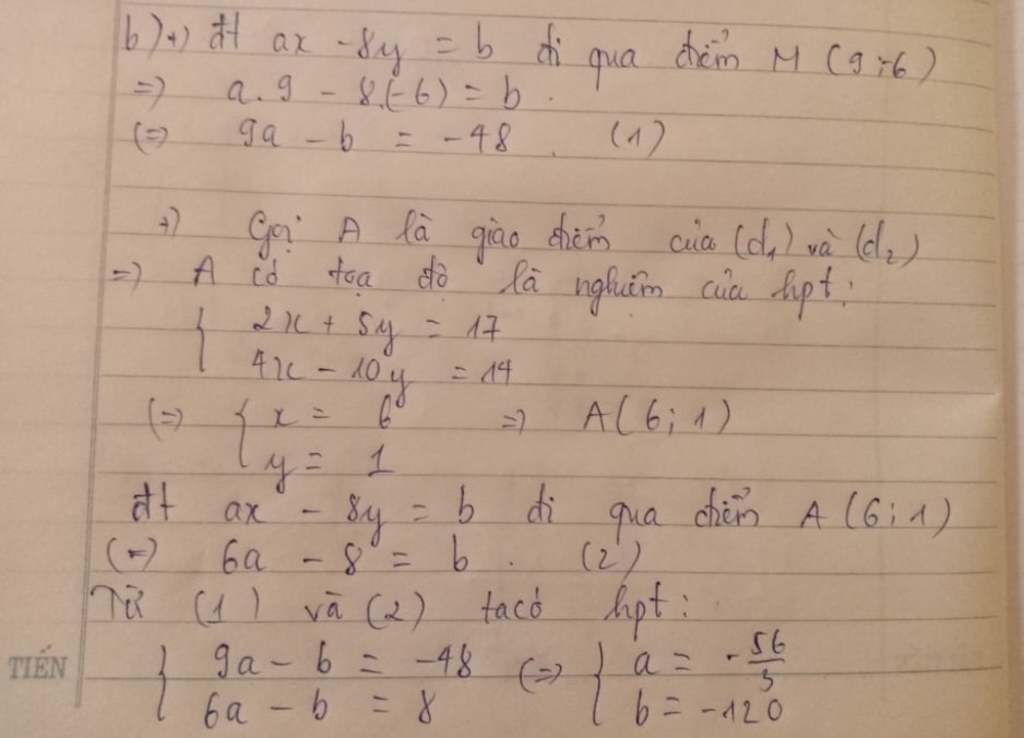 b) +) đt ax - 8y = b đi qua điểm M (9;-6)
=> a.9 - 8.(-6) = b.
(=) 9a - b = -48 (1)
+) Gọi A là giào điểm của (d₁) và (d₂)
=> A có tọa độ là nghiệm của hpt:
{ 2x + 5y = 17
4x - 10y = 14
(=) { x = 6 => A(6;1)
y = 1
đt ax - 8y = b đi qua điểm A (6;1)
(=) 6a - 8 = b. (2)
Từ (1) và (2) ta có hpt:
{ 9a - b = -48 (=) { a = -56/3
6a - b = 8 b = -120
TIẾN